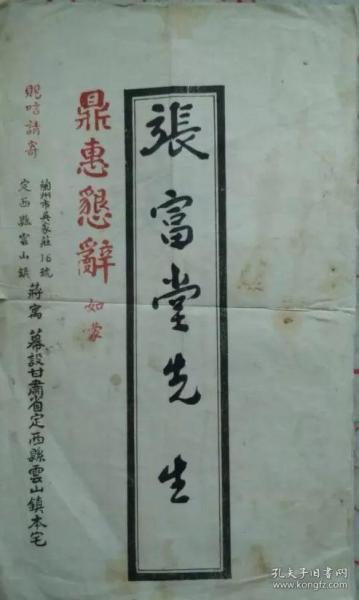 張富堂先生
鼎惠懇辭 如蒙
賜唁請寄
蘭州市吳家莊16號
定西縣雲山鎮
蔣寓
幕設甘肅省定西縣雲山鎮本宅
孔夫子旧书网
www.kongfz.com